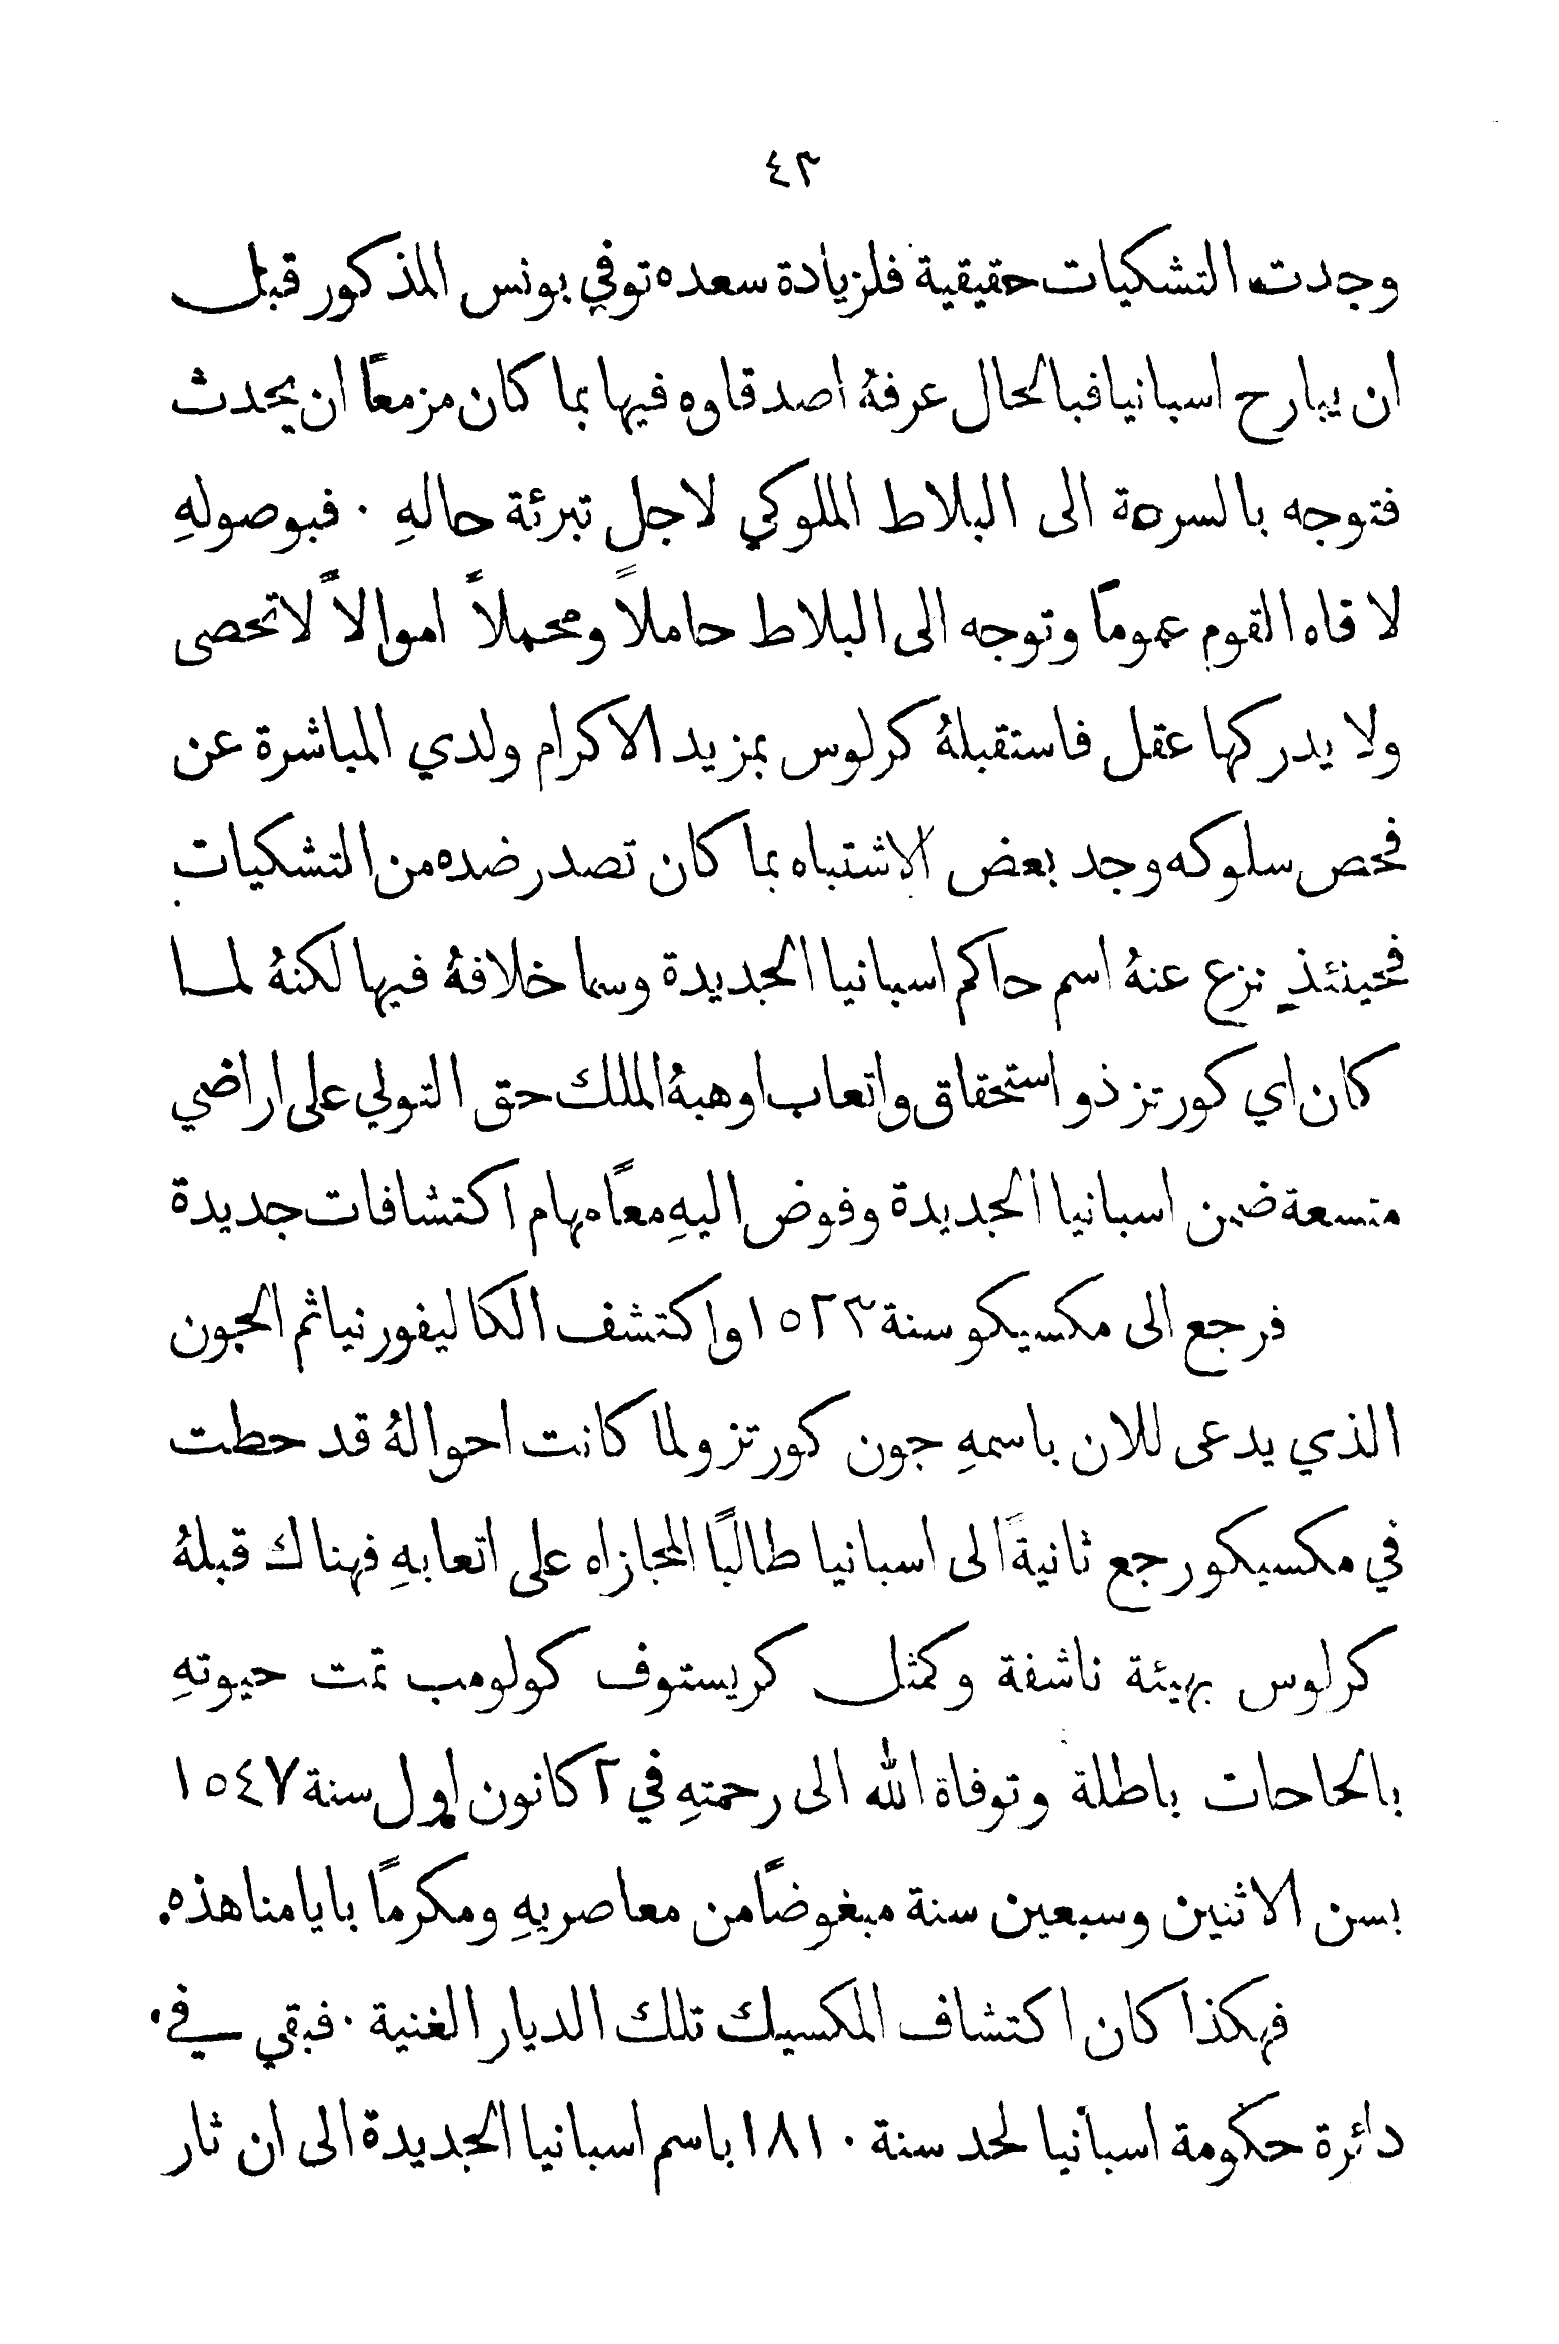 ٤٣
وجدت التشكيات حقيقية فلزيادة سعده توفي بونس المذكور قبل
ان يبارح اسبانيا فبالحال عرفهُ اصدقاوه فيها بما كان مزمعاً ان يحدث
فتوجه بالسرعة الى البلاط الملوكي لاجل تبرئة حالهِ · فبوصولهِ
لاقاه القوم عموماً وتوجه الى البلاط حاملاً ومحملاً اموالاً لا تحصى
ولا يدركها عقل فاستقبلهُ كرلوس بمزيد الاكرام ولدي المباشرة عن
فحص سلوكه وجد بعض الاشتباه بما كان تصدر ضده من التشكيات
فحينئذٍ نزع عنهُ اسم حاكم اسبانيا الجديدة وسما خلافهُ فيها لكنهُ لما
كان اي كورتز ذو استحقاق واتعاب اوهبهُ الملك حق التولي على اراضي
متسعة ضمن اسبانيا الجديدة وفوض اليهِ معاً مهام اكتشافات جديدة
فرجع الى مكسيكو سنة ١٥٢٣ واكتشف الكاليفورنيا ثم الجون
الذي يدعى للان باسمهِ جون كورتز ولما كانت احوالهُ قد حطت
في مكسيكو رجع ثانيةً الى اسبانيا طالبًا المجازاه على اتعابهِ فهناك قبلهُ
كرلوس بهيئة ناشفة وكمثل كريستوف كولومب تمت حيوتهِ
بالحاحات باطلة وتوفاة الله الى رحمتهِ في ٢ كانون اول سنة ١٥٤٧
بسن الاثنين وسبعين سنة مبغوضاً من معاصريهِ ومكرمًا بايامنا هذه.
فهكذا كان اكتشاف المكسيك تلك الديار الغنية · فبقي في
دائرة حكومة اسبانيا لحد سنة ١٨١٠ باسم اسبانيا الجديدة الى ان ثار